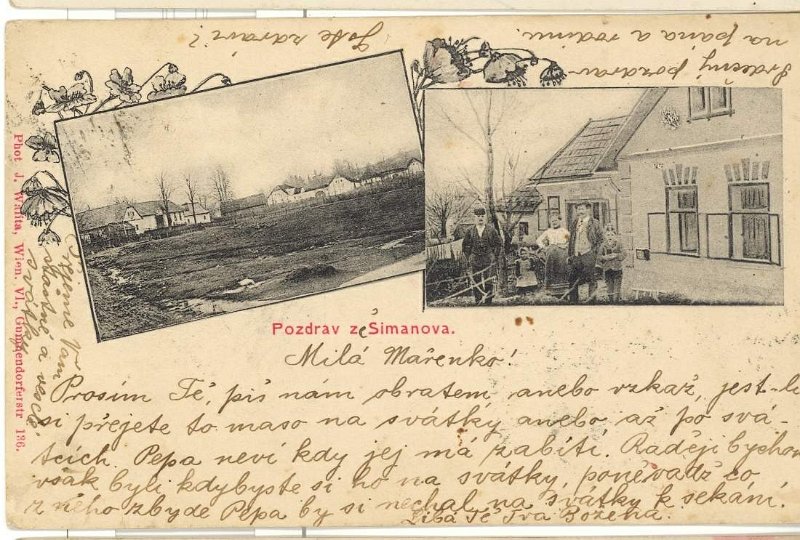 Jste zdrávi?
Srdečný pozdrav
na pána a rodinu
Phot J. Wanita, Wien. VI., Gumpendorferstr 136.
Přejeme Vám
šťastné a veselé
svátky.
Pozdrav ze Simanova.
Milá Mařenko!
Prosím Tě, piš nám obratem, anebo vzkaž, jest-li
si přejete to maso na svátky anebo až po svá-
tcích. Pepa neví kdy jej má zabíti. Raději bychom
však byli kdybyste si ho na svátky, poněvadž co
z něho zbyde Pepa by si nechal na svátky k sekání.
Líbá Tě Tvá Božena.